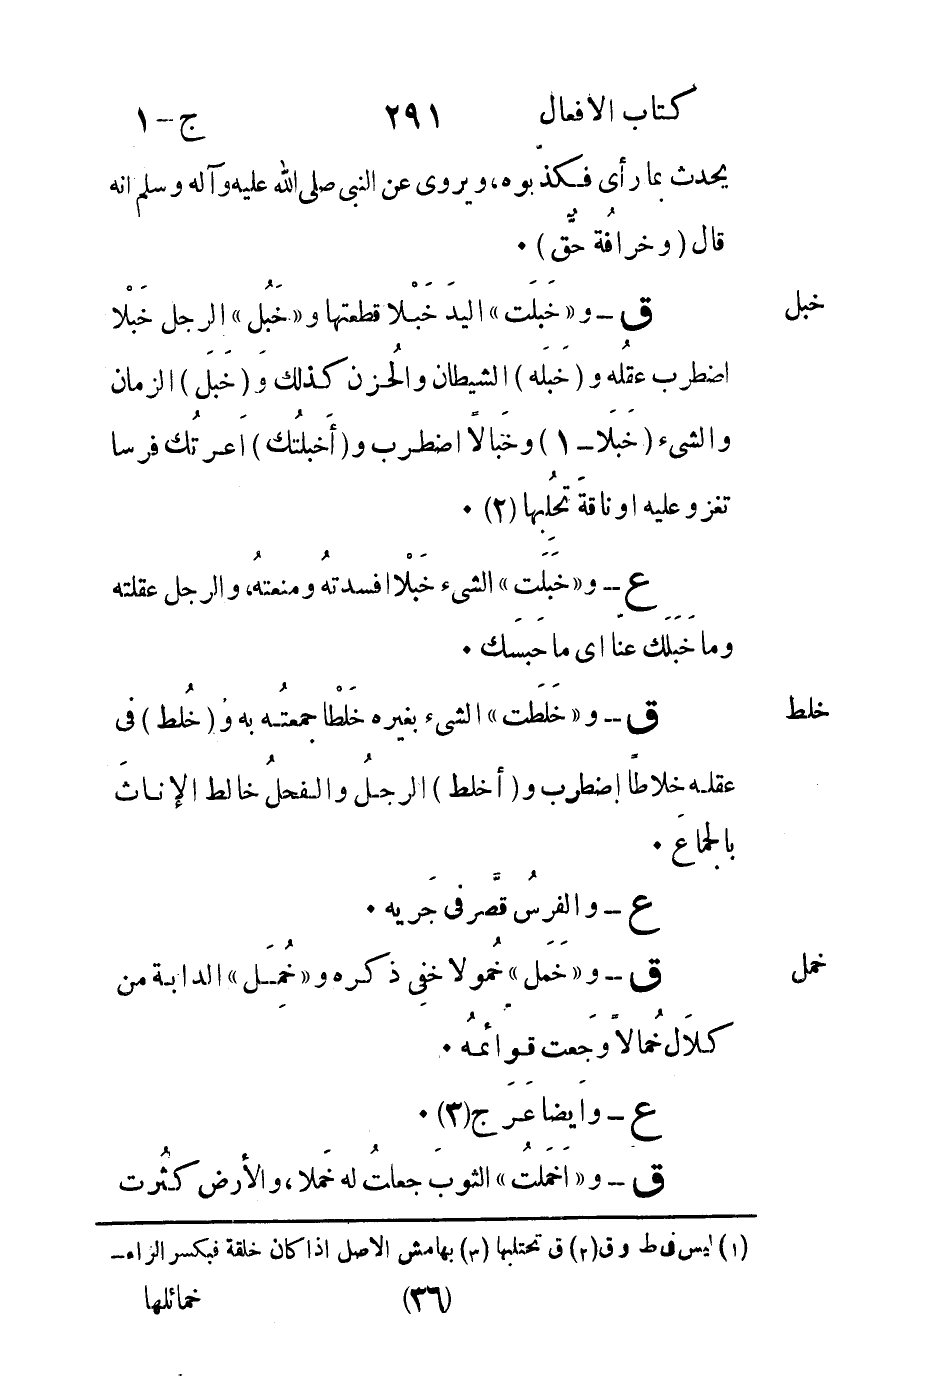 كتاب الافعال ٢٩١ ج–١
يحدث بما رأى فكذّبوه، ويروى عن النبى صلى الله عليه وآله وسلم انه
قال (وخرافُة حقٌّ) ٠
خبل
ق – و«خَبَلَت» اليدَ خَبْلا قطعتها و«خَبُل» الرجل خَبْلا
اضطرب عقلُه و(خَبَله) الشيطان والحُزن كذلك وَ(خَبَلَ) الزمان
والشىء (خَبَلا – ١) وخَبالاً اضطرب و(أَخبلتُك) اَعرتُك فرسا
تغزو عليه او ناقةَ تحلُبِها (٢) ٠
ع – و«خَبَلَت» الشىء خَبْلا افسدتهُ ومنعتهُ، والرجل عقلته
وما خَبَلَك عنّا اى ما حَبَسَك ٠
خلط
ق – و«خلَطَت» الشىء بغيره خَلْطا جمعتُـه به وُ(خُلط) فى
عقلـه خلاطاً إضطرب و(أخلط) الرجلُ والفحلُ خالط الإناثَ
بالجماعَ ٠
ع – والفرسُ قصَّر فى جَريه ٠
خمل
ق – و«خَمَل» خُمولا خفِى ذكره و«خُمِـَل» الدابـة من
كلاَل خُمالاً وَجِعت قوائمُـه ٠
ع – واَيضا عَرَج(٣) ٠
ق – و«اَخَملتُ» الثوبَ جعلتُ له خَملا، والأرض كثُرت
(١) ليس فى ط وق(٢) ق تحتلبها (٣) بهامش الاصل اذا كان خلقة فبكسر الراء–
(٣٦) خمائلها